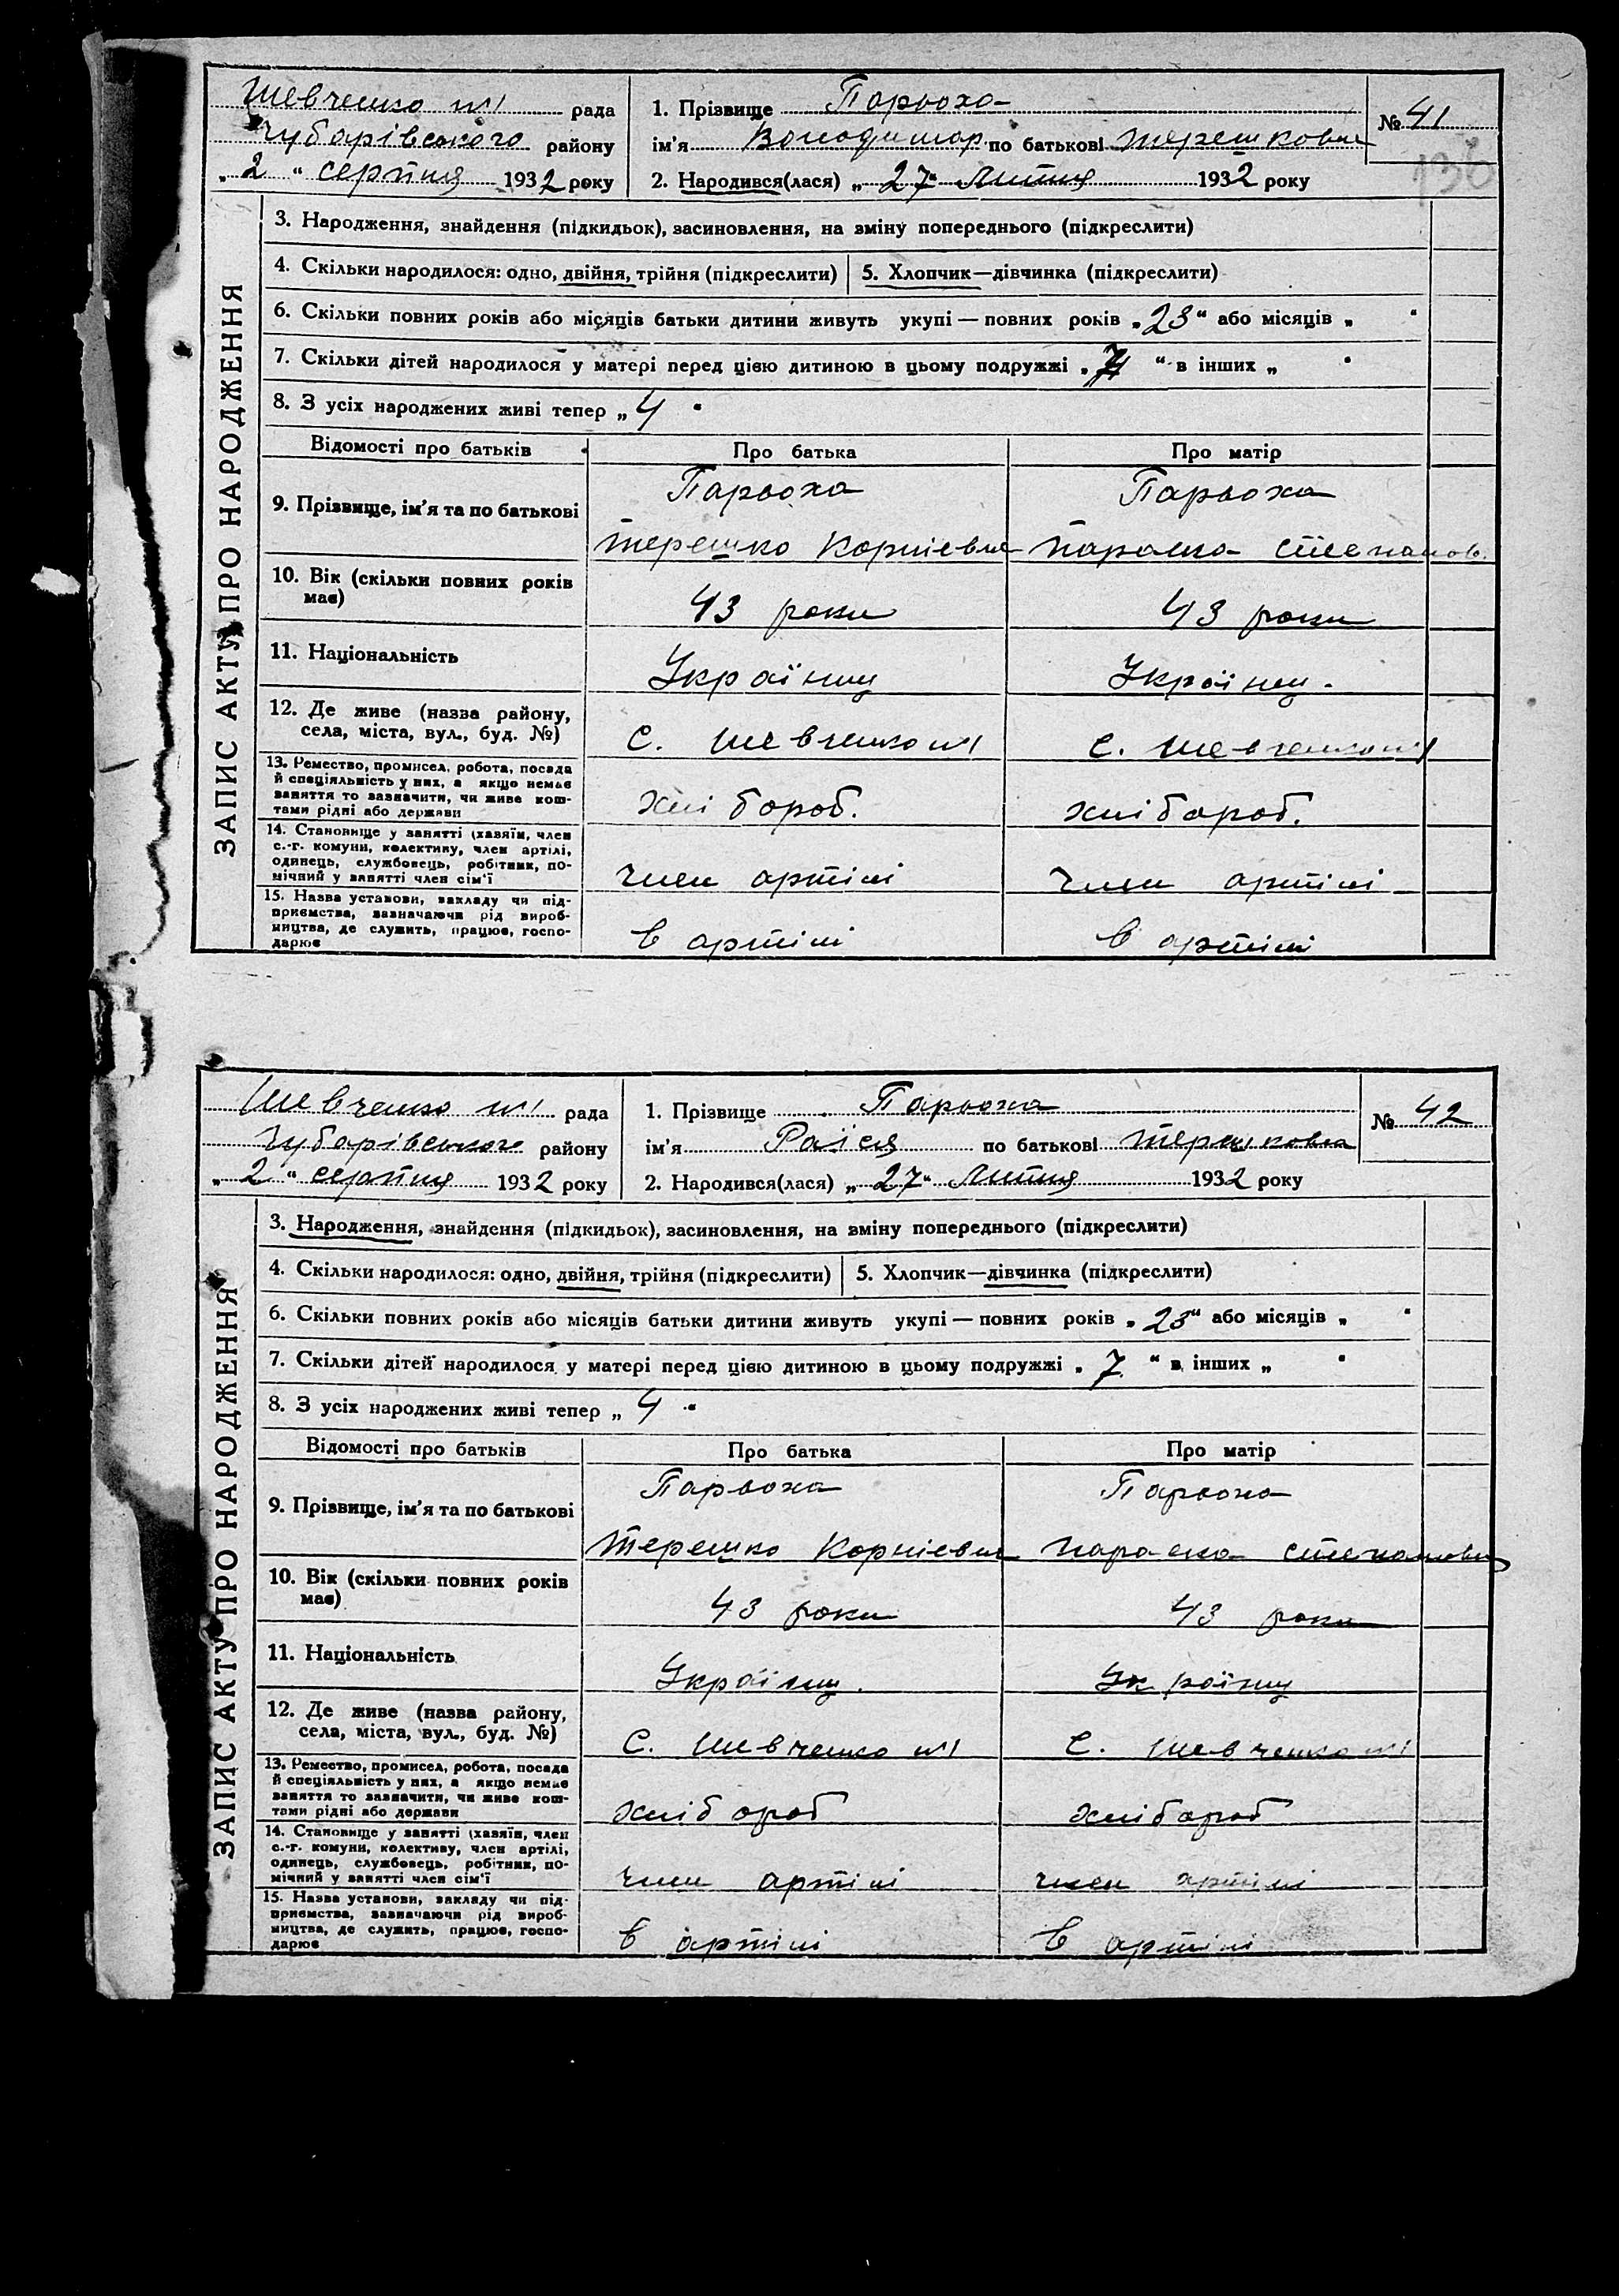 Шевченко №1 рада
Чубарівського району
„2“ серпня 1932 року
1. Прізвище Парьоха
ім'я Володимир по батькові Терешкович
2. Народився(лася) „27“ Липня 1932 року
№ 41
136
ЗАПИС АКТУ ПРО НАРОДЖЕННЯ
3. Народження, знайдення (підкидьок), засиновлення, на зміну попереднього (підкреслити)
4. Скільки народилося: одно, двійня, трійня (підкреслити) 5. Хлопчик—дівчинка (підкреслити)
6. Скільки повних років або місяців батьки дитини живуть укупі — повних років „23“ або місяців „ “
7. Скільки дітей народилося у матері перед цією дитиною в цьому подружжі „7“ в інших „ “
8. З усіх народжених живі тепер „4“
Відомості про батьків Про батька Про матір
9. Прізвище, ім'я та по батькові
Парьоха Парьоха
Терешко Корнієвич Параска Степанов.
10. Вік (скільки повних років
має)
43 роки 43 роки
11. Національність
Українц Українц.
12. Де живе (назва району,
села, міста, вул., буд. №)
С. Шевченко №1 С. Шевченко №1
13. Ремество, промисел, робота, посада
й спеціяльність у них, а якщо немає
заняття то зазначити, чи живе кош-
тами рідні або держави
хлібороб. хлібороб.
14. Становище у занятті (хазяїн, член
с.-г. комуни, колективу, член артілі,
одинець, службовець, робітник, по-
мічний у занятті член сім'ї
член артілі член артілі
15. Назва установи, закладу чи під-
приємства, зазначаючи рід вироб-
ництва, де служить, працює, госпо-
дарює
в артілі в артілі
Шевченко №1 рада
Чубарівського району
„2“ серпня 1932 року
1. Прізвище Парьоха
ім'я Раїса по батькові Терешковна
2. Народився(лася) „27“ Липня 1932 року
№ 42
ЗАПИС АКТУ ПРО НАРОДЖЕННЯ
3. Народження, знайдення (підкидьок), засиновлення, на зміну попереднього (підкреслити)
4. Скільки народилося: одно, двійня, трійня (підкреслити) 5. Хлопчик—дівчинка (підкреслити)
6. Скільки повних років або місяців батьки дитини живуть укупі — повних років „23“ або місяців „ “
7. Скільки дітей народилося у матері перед цією дитиною в цьому подружжі „7“ в інших „ “
8. З усіх народжених живі тепер „4“
Відомості про батьків Про батька Про матір
9. Прізвище, ім'я та по батькові
Парьоха Парьоха
Терешко Корнієвич Параска Степановна
10. Вік (скільки повних років
має)
43 роки 43 роки
11. Національність
Українц. Українц
12. Де живе (назва району,
села, міста, вул., буд. №)
С. Шевченко №1 С. Шевченко №1
13. Ремество, промисел, робота, посада
й спеціяльність у них, а якщо немає
заняття то зазначити, чи живе кош-
тами рідні або держави
хлібороб хлібороб
14. Становище у занятті (хазяїн, член
с.-г. комуни, колективу, член артілі,
одинець, службовець, робітник, по-
мічний у занятті член сім'ї
член артілі член артілі
15. Назва установи, закладу чи під-
приємства, зазначаючи рід вироб-
ництва, де служить, працює, госпо-
дарює
в артілі в артілі